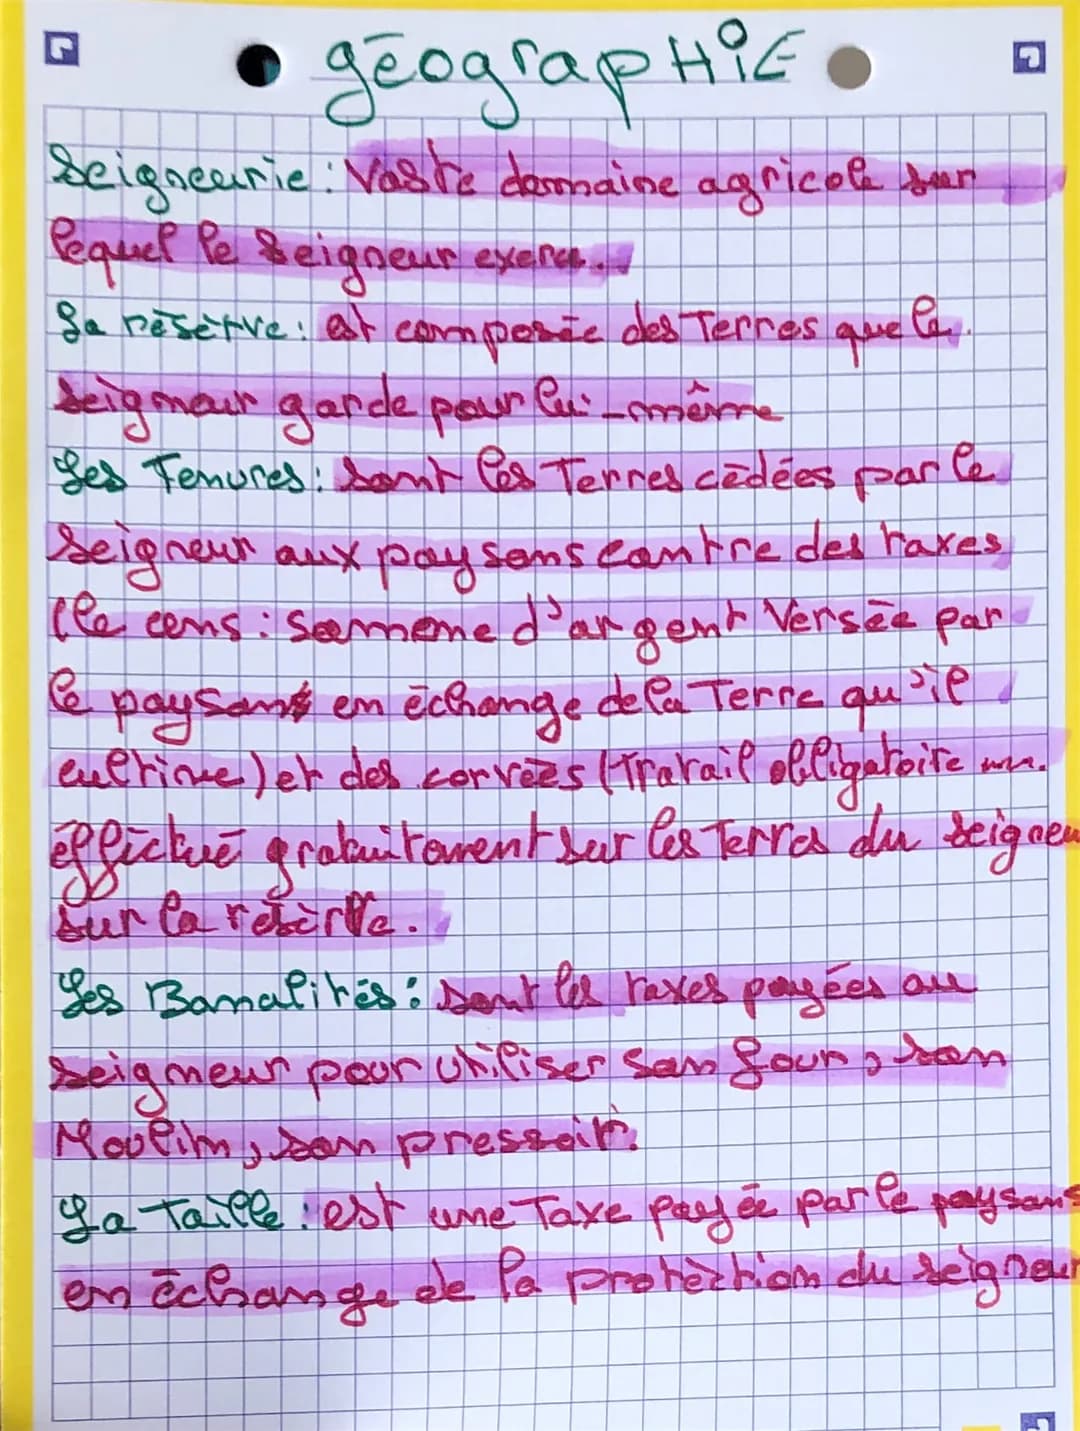 géograpHiE
Seigneurie : Vaste domaine agricole sur
lequel le seigneur exerce.
La résèrve : est composée des Terres que le
seigneur garde pour lui-même
Les Tenures : sont les Terres cédées par le
seigneur aux paysans contre des taxes
(le cens : somme d'argent Versée par
le paysans en échange de la Terre qu'il
cultive) et des corvées (Travail obligatoire
éffectué gratuitement sur les Terres du seigneu
sur la resèrve.
Les Banalités : sont les taxes payées au
seigneur pour utiliser son four, son
Moulin, son pressoir.
La Taille : est une Taxe payée par le paysans
en échange de la protèction du seigneur